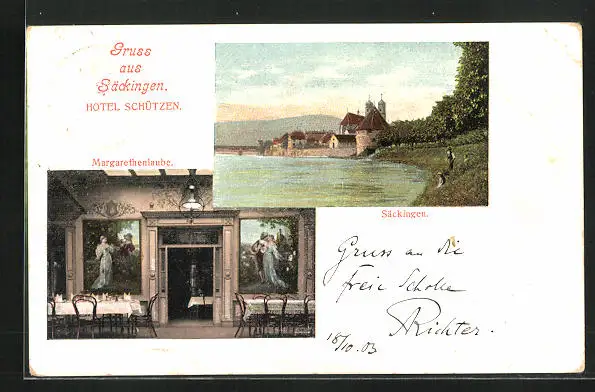 Gruss
aus
Säckingen.
HOTEL SCHÜTZEN.
Margarethenlaube.
Säckingen.
Gruss an die
freie Scholle
A Richter.
18/10.03